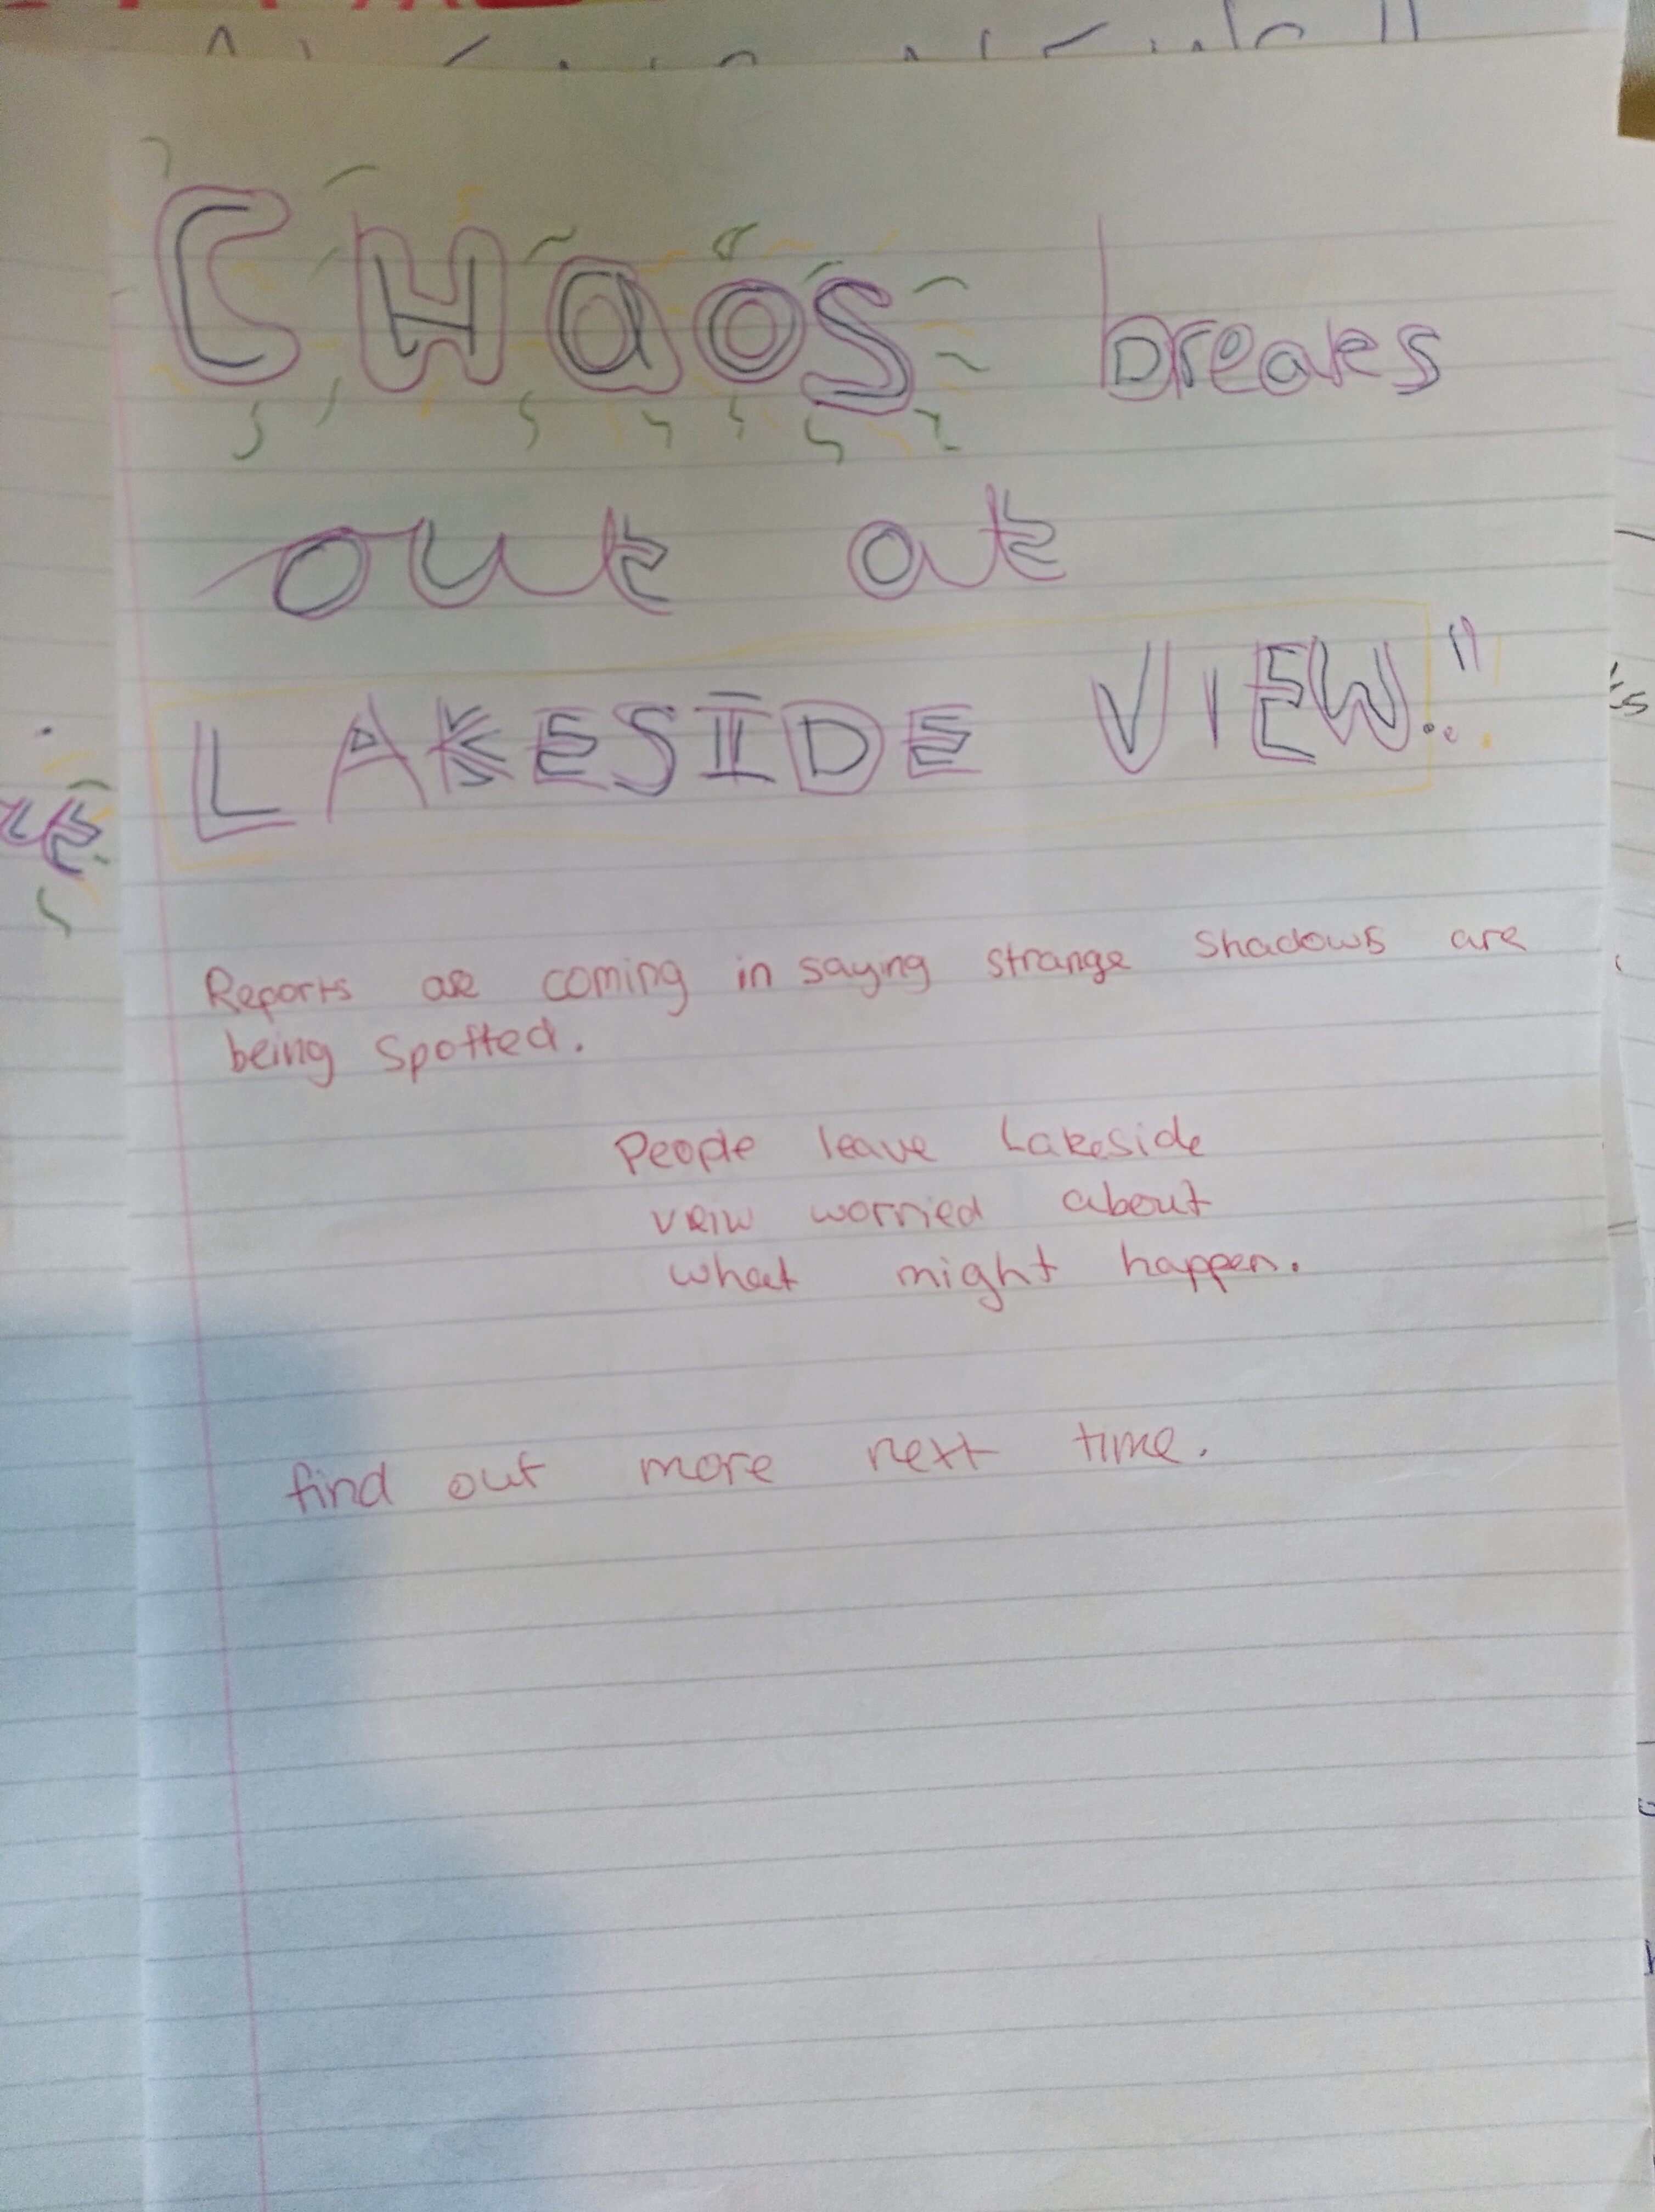 CHaOS breaks
out at
LAKESIDE VIEW!!
Reports are coming in saying strange shadows are
being spotted.
People leave Lakeside
veiw worried about
what might happen.
find out more next time.